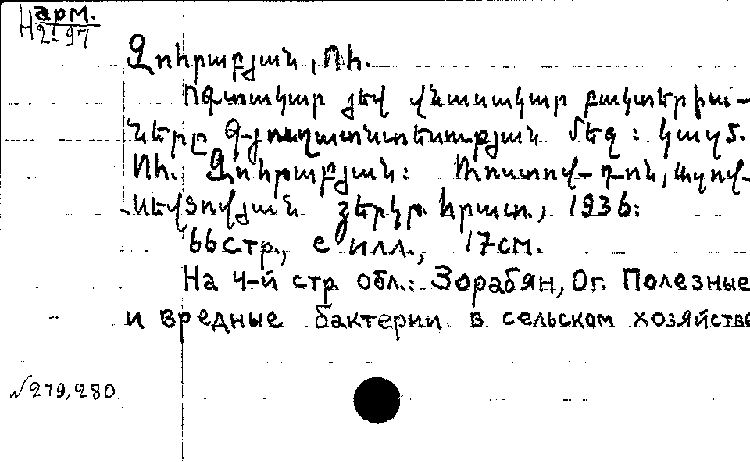 арм.
Н 21-97
Զոհրաբյան, Ոհ.
Ոգտակար յեվ վնասակար բակտերիա-
ները գ-յուղատնտեսության մեջ: Կազմ.
Ոհ. Զոհրաբյան: Ռոստով-Դոն, Ազով-
սեվծովյան յերկր հրատ., 1936:
66 стр., с илл., 17 см.
На 4-й стр обл.: Зорабян, Ог. Полезные
и вредные бактерии в сельском хозяйстве
№ 279,280